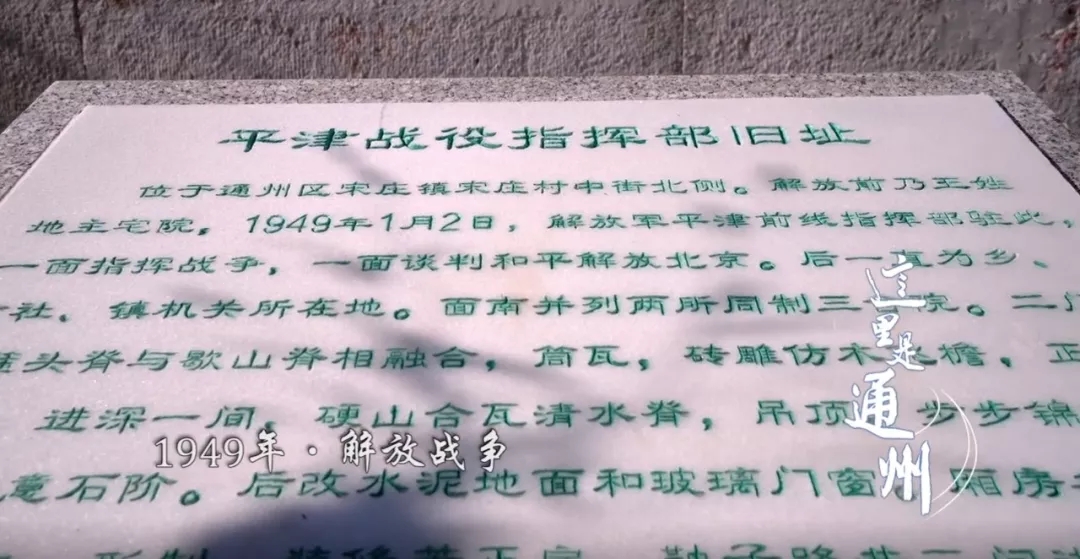 平津战役指挥部旧址
位于通州区宋庄镇宋庄村中街北侧。解放前乃王姓
地主宅院。1949年1月2日，解放军平津前线指挥部驻此，
一面指挥战争，一面谈判和平解放北京。后一直为乡、
社、镇机关所在地。面南并列两所同制三院。二门
头脊与歇山脊相融合，筒瓦，砖雕仿木檐，正
进深一间，硬山合瓦清水脊，吊顶，步步锦
意石阶。后改水泥地面和玻璃门窗。厢房
1949年·解放战争
这里是
通州